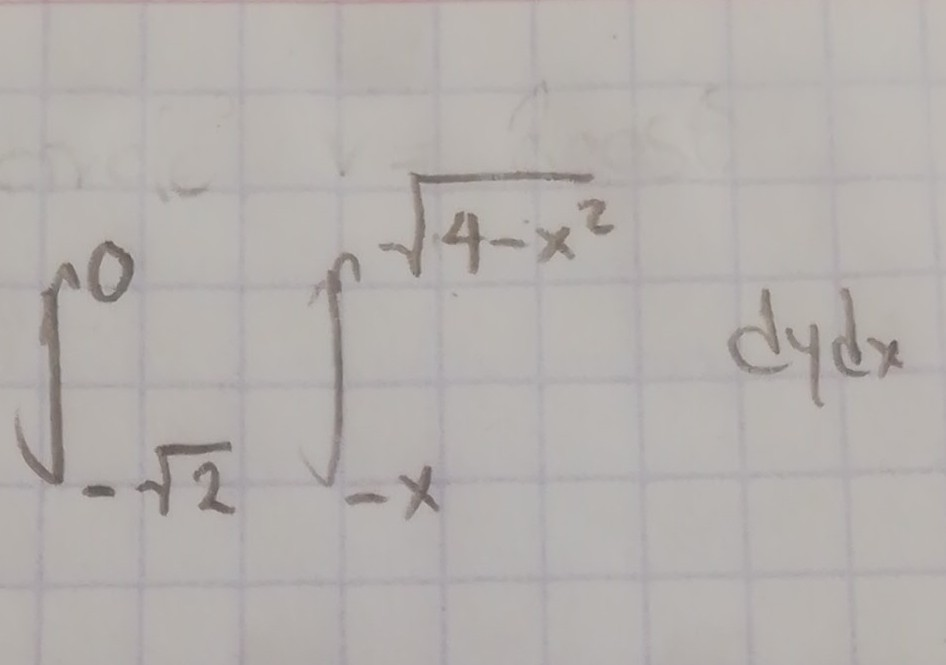 ∫_{-√2}^{0} ∫_{-x}^{√(4-x²)} dydx